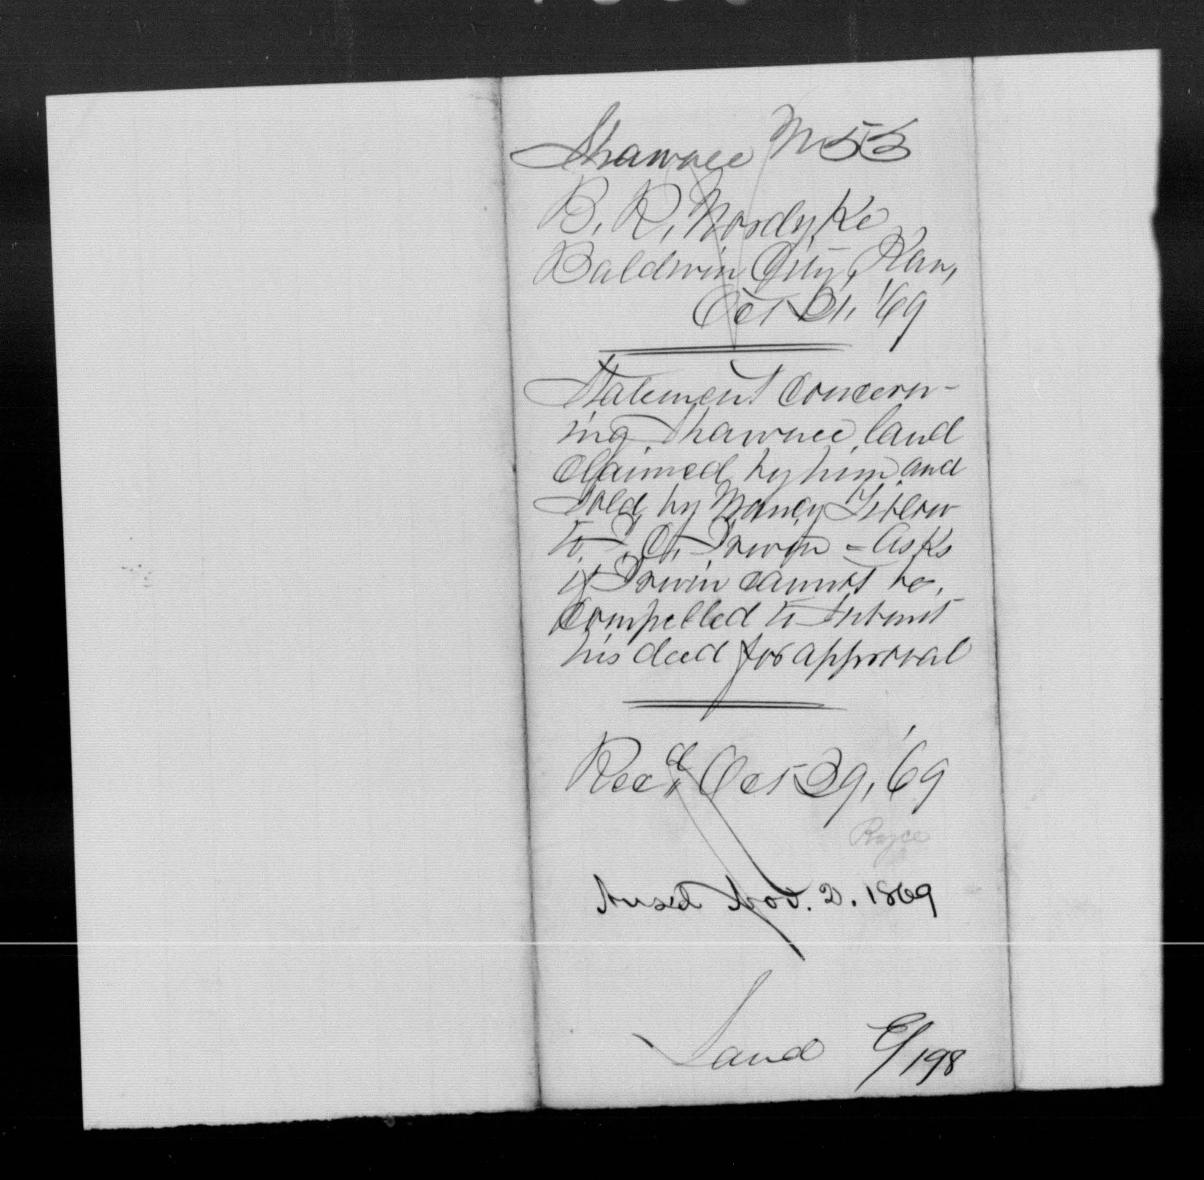 Shawnee N 53
B. R. Nordyke
Baldwin City, Kan,
Oct 21, '69
Statement concern-
ing Shawnee land
claimed by him and
sold by Nancy
to Irwin - Asks
if Irwin cannot be,
compelled to submit
his deed for approval
Recd, Oct 29, '69
Royce
Ansd Nov. 2. 1869
Land E/198